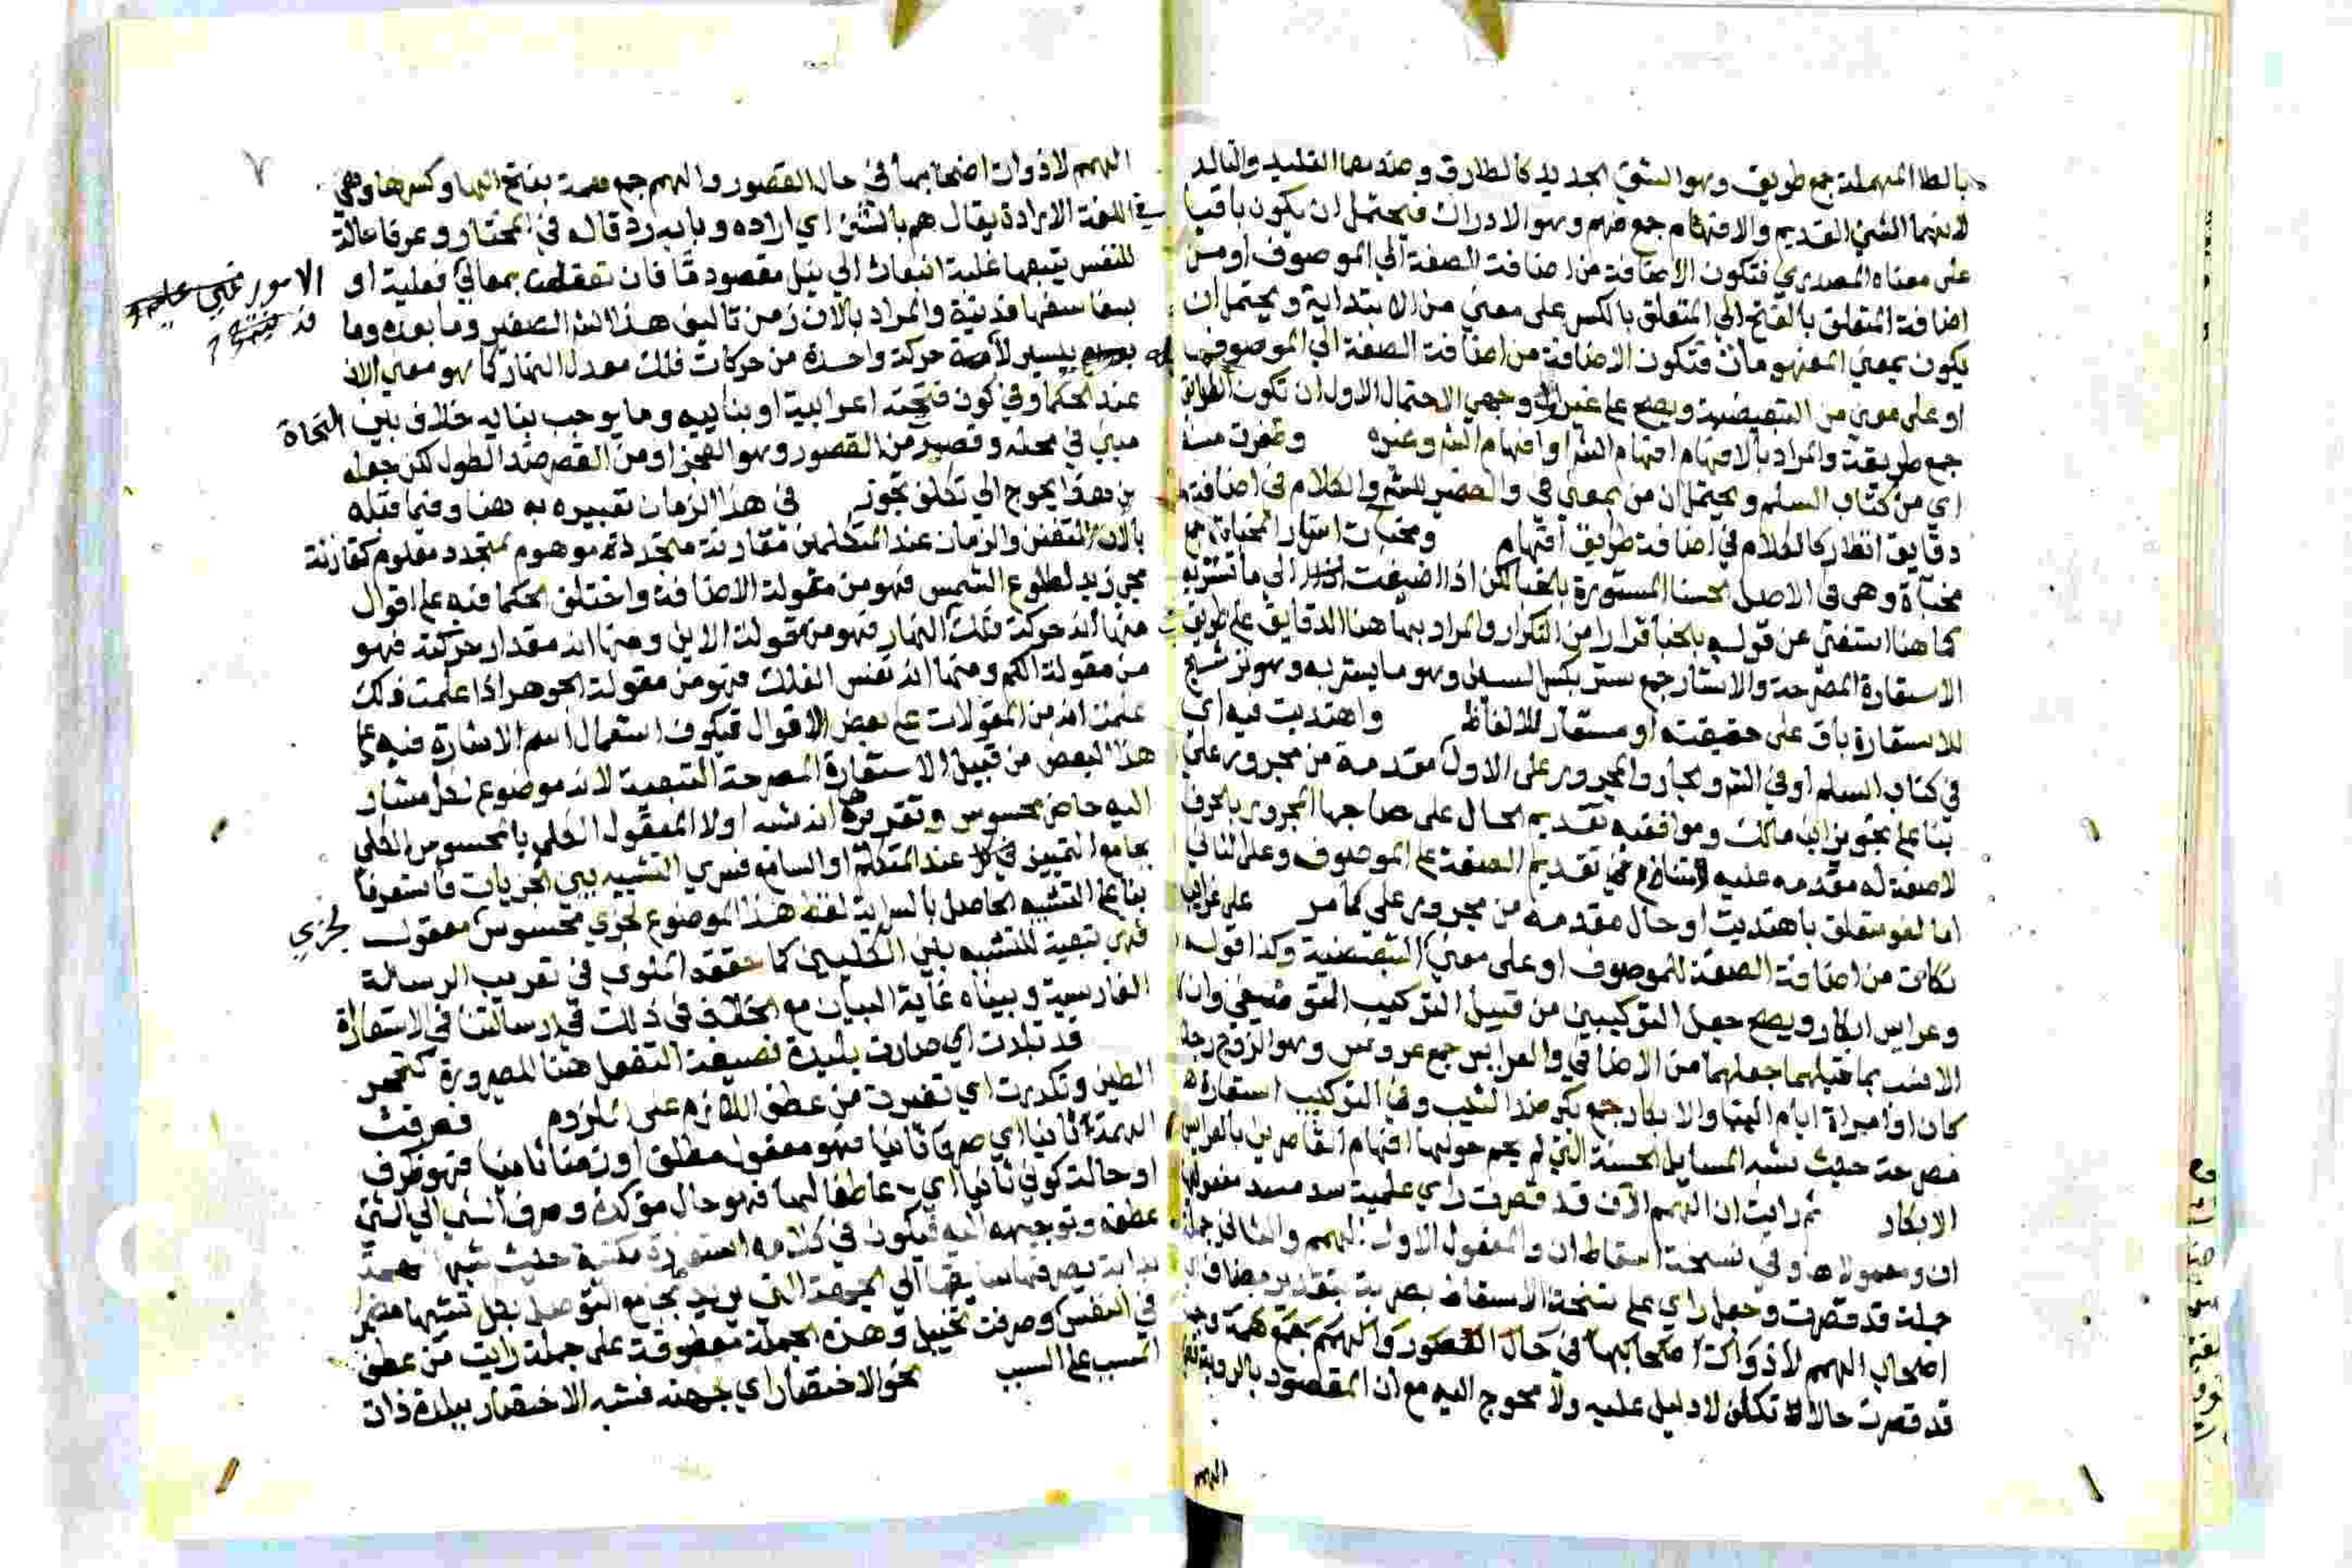 بالطا المهملة جمع طريف وهو الشيء الجديد كالطارق وضدهما التليد والتالد
لانهما الشيء القديم والافهام جمع فهم وهو الادراك فيحتمل ان يكون باقيا
على معناه المصدري فتكون الاضافة من اضافة الصفة الي الموصوف او من
اضافة المتعلق بالفتح الي المتعلق بالكسر على معني من الابتدائية ويحتمل ان
يكون بمعني المفهومات فتكون الاضافة من اضافة الصفة الي الموصوف
او على معني من التبعيضية ويصح على غير وجهي الاحتمال الاول ان تكون
جمع طريقة والمراد بالافهام افهام الشر او افهام الشر وغيره وظفرت منه
اي من كتاب السلم ويحتمل ان من بمعني في والضمير للشر والكلام في اضافة
دقايق انظار كالكلام في اضافة طريق افهام ومخبآت استار المخبات جمع
مخباة وهي في الاصل لحسنا المستورة بالخبا لكن اذا اضيفت الي ما تستتر به
كما هنا استغني عن قوله بالخبا فرارا من التكرار والمراد بها هنا الدقايق على طريق
الاستعارة المصرحة والاستار جمع ستر بكسر السين وهو ما يستر به وهو ترشيح
للاستعارة باق على حقيقته او مستعار للالفاظ واهتديت فيه اي
في كتاب السلم او في الشر والجار والمجرور على الاول مقدمة من مجرور على
بنا على تجويز ابن مالك وموافقيه تقديم الحال على صاحبها المجرور بالحرف
لا صفة له مقدمه عليه لامتناع تقديم الصفة على الموصوف وعلى الثاني
اما لغو متعلق باهتديت او حال مقدمه من مجرور على كما مر على غرايب
نكات من اضافة الصفة للموصوف او على معني من التبعيضية وكذا قوله
وعرايس ابكار ويصح جعل التركيبين من قبيل التركيب التوصيفي وان كان
الانسب بما قبلهما جعلهما من الاضافي والعرايس جمع عروس وهو الزوج رجلا
كان او امراة ايام البنا والابكار جمع بكر ضد الثيب وفي التركيب استعارة
مصرحة حيث شبه المسايل الحسنة التي لم يحم حولها افهام القاصرين بالعرايس
الابكار ثم رايت ان الهمم الآن قد قصرت راي علمية سد مسد مفعوليها
ان ومعمولاها وفي نسخة اسقاط ان والمفعول الاول الهمم والثاني جملة
جملة قد قصرت وجعل راي على نسخة الاسقاط بصرية بتقدير مضاف اي
اصحاب الهمم لا ذوات اصحابها في حال القصور والهمم جمع همة وجملة
قد قصرت حالا تكلف لا دليل عليه ولا محوج اليه مع ان المقصود بالروية
الهمم
٧
الهمم لا ذوات اصحابها في حال القصور والهمم جمع همة بفتح الها وكسرها وهي
في اللغة الارادة يقال هم بالشيء اي اراده وبابه رد قاله في المختار وعرفا حالة
للنفس يتبعها غلبة انبعاث الي نيل مقصود ما فان تعلقت بمعالي الامور فعلية او
بسفاسفها فدنية والمراد بالان زمن تاليف هذا الشر الصغير وما بعده وما
بيسير لا حركة واحدة من حركات فلك معدل النهار كما هو معني الان
عند الحكما وفي كون فتحته اعرابية او بنائيه وما يوجب بنايه خلاف بين النحاة
مبين في محله وقصر من القصور وهو العجز او من القصر ضد الطول لكن جعله
من هذا يحوج الي تكلف تجوز في هذا الزمان تعبيره به هنا وفيما قبله
بالان للتفنن والزمان عند المتكلمين مقارنة متجدد موهوم لمتجدد معلوم كمقارنة
مجي زيد لطلوع الشمس فهو من مقولة الاضافة واختلف الحكما فيه على اقوال
منها انه حركة فلك النهار فهو من مقولة الاين ومنها انه مقدار حركته فهو
من مقولة الكم ومنها انه نفس الفلك فهو من مقولة الجوهر اذا علمت ذلك
علمت انه من المقولات على بعض الاقوال فيكون استعمال اسم الاشارة فيه على
هذا البعض من قبيل الاستعارة المصرحة التبعية لانه موضوع لكل مشار
اليه حاضر محسوس وتقريرها انه شبه اولا المعقول الكلي بالمحسوس الكلي
بجامع التمييز في كل عند المتكلم او السامع فسري التشبيه بين الجزيات فاستعرنا
بنا على التشبيه الحاصل بالسراية لفظ هذا الموضوع لجزي محسوس لجزي معقول
فهي تبعية للتشبيه بين الكليين كما حققه الملوي في تعريب الرسالة
الفارسية وبيناه غاية البيان مع الخلاف في ذلك في رسالتنا في الاستعارة
قد تبلدت اي صارت بليدة فصيغة التفعل هنا للصيرورة كتحجر
الطين وتكدرت اي تغيرت من عطف اللازم على الملزوم فصرفت
الهمة ثانيا اي صرفا ثانيا فهو مفعول مطلق او زمنا ثانيا فهو ظرف
او حالة كوني ثانيا اي عاطفا لها فهو حال مؤكدة وصرف الشي الي الشي
عطفه وتوجيهه اليه فيكون في كلامه استعارة مكنية حيث شبها
بدابة يصرفها سايقها الي الجهة التي يريد بجامع التوصل بكل تشبيها مضمرا
في النفس وصرفت تخييل وهذه الجملة معطوفة على جملة رايت من عطف
المسبب على السبب نحو الاختصار اي جهته فشبه الاختصار ببلدة ذات